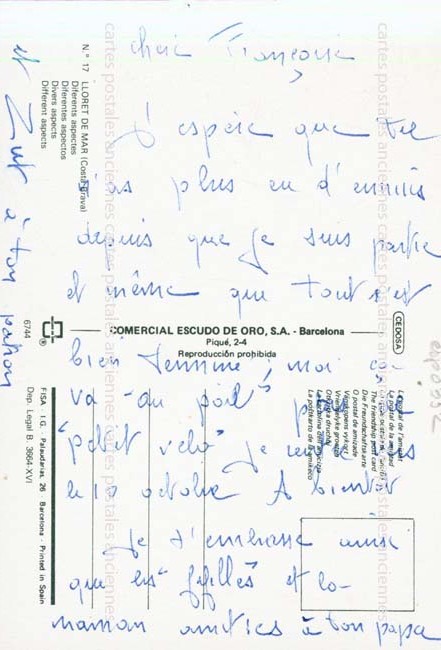 chère Françoise
J'espère que tu
n'as plus eu d'ennuis
depuis que je suis partie
et même que tout s'est
bien terminé, moi ça
va "au poil"
"petit vélo" je rentre
le 10 octobre A bientôt
Je t'embrasse ainsi
que les "filles" et la
maman amitiés à ton papa
et Zut à ton patron
N.° 17 LLORET DE MAR (Costa Brava)
Diferentes aspectos
Diferentes aspectes
Divers aspects
Different aspects
COMERCIAL ESCUDO DE ORO, S.A. - Barcelona
Piqué, 2-4
Reproducción prohibida
CEDOSA
6744
FISA - I.G. Palaudarias, 26 Barcelona - Printed in Spain
Dep. Legal B. 3664-XVI
La postal de la amistad
The friendship post card
Die Freundschaftskarte
O postal de amizade
cartes postales anciennes cartes postales anciennes
cartes postales anciennes cartes postales anciennes